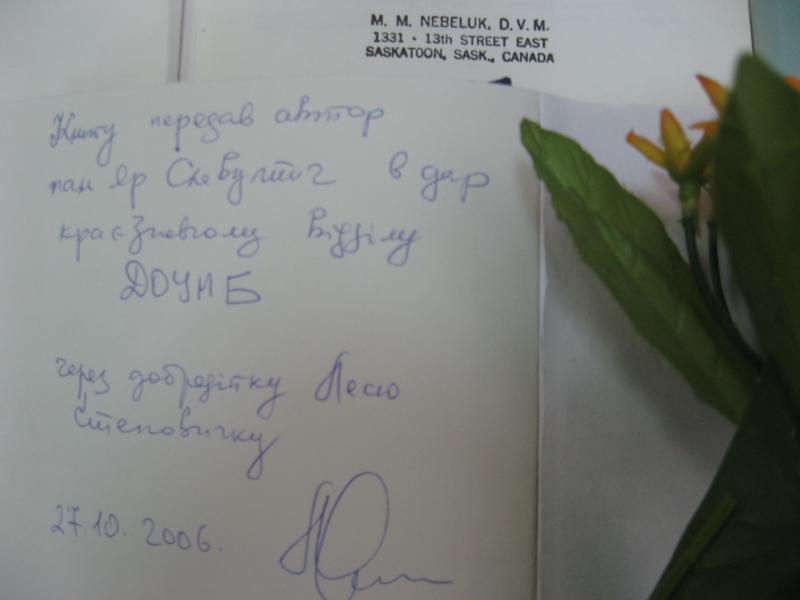 M. M. NEBELUK, D.V.M.
1331 - 13th STREET EAST
SASKATOON, SASK., CANADA
Книгу передав автор
пан Яр Славутич в дар
краєзнавчому відділу
ДОУНБ
через добродійку Лесю
Степовичку
27.10.2006.